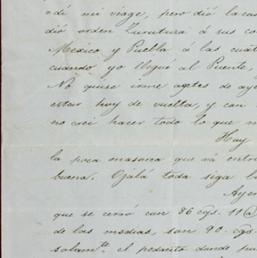 dé mi viage, pero dió la cas
dió orden Zurutuza á sus co
Mexico y Puebla á las cuat
cuando yo llegué al Puente,
No quise irme antes de aye
estar hoy de vuelta, y con
no creí hacer todo lo que m
Hay
la poca masana que vá entra
buena. Ojalá toda siga l
Ayer
que se cerró con 86 cgs. 11@
de las medias, son 90 cgs
solamte. el pedacito donde pu